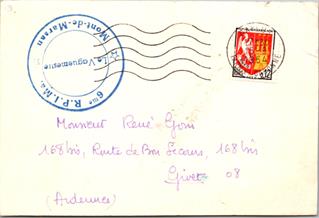 6ème R.P.I.Ma.
Mont-de-Marsan
Le Vaguemestre
Monsieur René Goin
168 bis, Route de Bon Secours, 168 bis
Givet 08
(Ardennes)